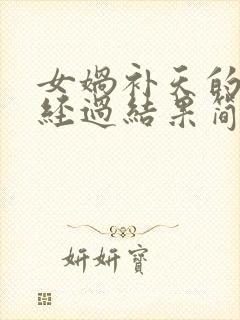 女媧补天的
经過結果简
妍妍寶